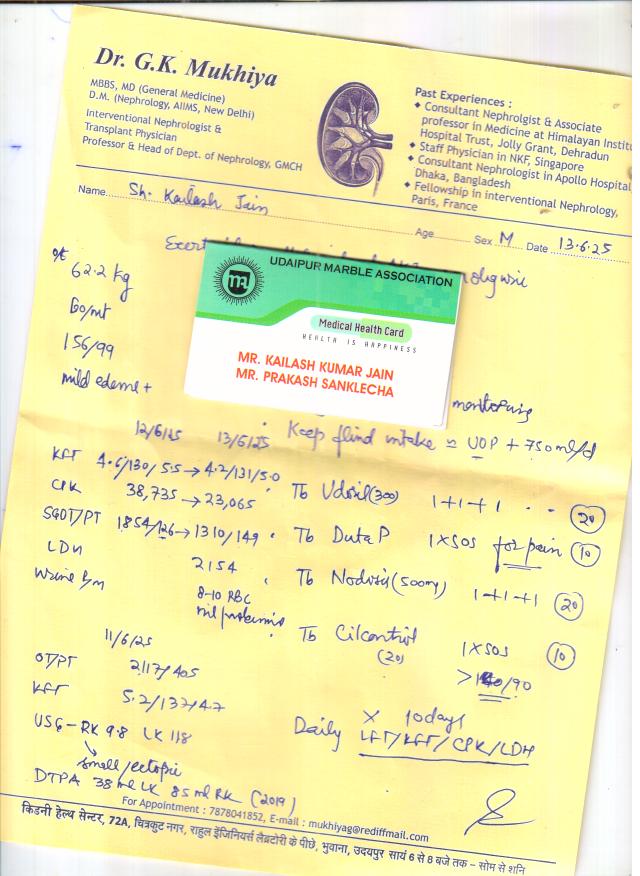 Dr. G.K. Mukhiya
MBBS, MD (General Medicine)
D.M. (Nephrology, AIIMS, New Delhi)
Interventional Nephrologist &
Transplant Physician
Professor & Head of Dept. of Nephrology, GMCH
Past Experiences :
Consultant Nephrolgist & Associate
professor in Medicine at Himalayan Institu
Hospital Trust, Jolly Grant, Dehradun
Staff Physician in NKF, Singapore
Consultant Nephrologist in Apollo Hospital
Dhaka, Bangladesh
Fellowship in interventional Nephrology,
Paris, France
Name Sh. Kailash Jain
Age Sex M Date 13.6.25
62.2 kg
156/99
mild edema +
UDAIPUR MARBLE ASSOCIATION
Medical Health Card
HEALTH IS HAPPINESS
MR. KAILASH KUMAR JAIN
MR. PRAKASH SANKLECHA
monitoring
Keep fluid intake = UOP + 750 ml/d
12/6/25 13/6/25
KFT 4.6/130/5.5 → 4.2/131/5.0
CPK 38,735 → 23,065
SGOT/PT 1854/126 → 1310/149
LDH 2154
Urine
8-10 RBC
nil
Tb Udiliv (300) 1+1+1 20
Tb Duta P 1XSOS for pain 10
Tb Nodosis (500mg) 1+1+1 20
Tb Cilcontrol 1XSOS 10
(20) > /90
X 10 days
Daily LFT/KFT/CPK/LDH
11/6/25
OT/PT 2117/405
KFT 5.2/137/4.7
USG - RK 9.8 LK 118
small/ectopic
DTPA 38 ml LK 85 ml RK (2019)
For Appointment : 7878041852, E-mail : mukhiyag@rediffmail.com
किडनी हेल्थ सेन्टर, 72A, चित्रकुट नगर, राहुल इंजिनियर्स लैबेटोरी के पीछे, भुवाना, उदयपुर सायं 6 से 8 बजे तक – सोम से शनि